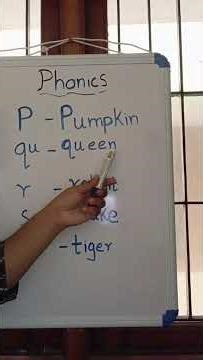 Phonics
P - Pumpkin
qu - queen
r -
- tiger